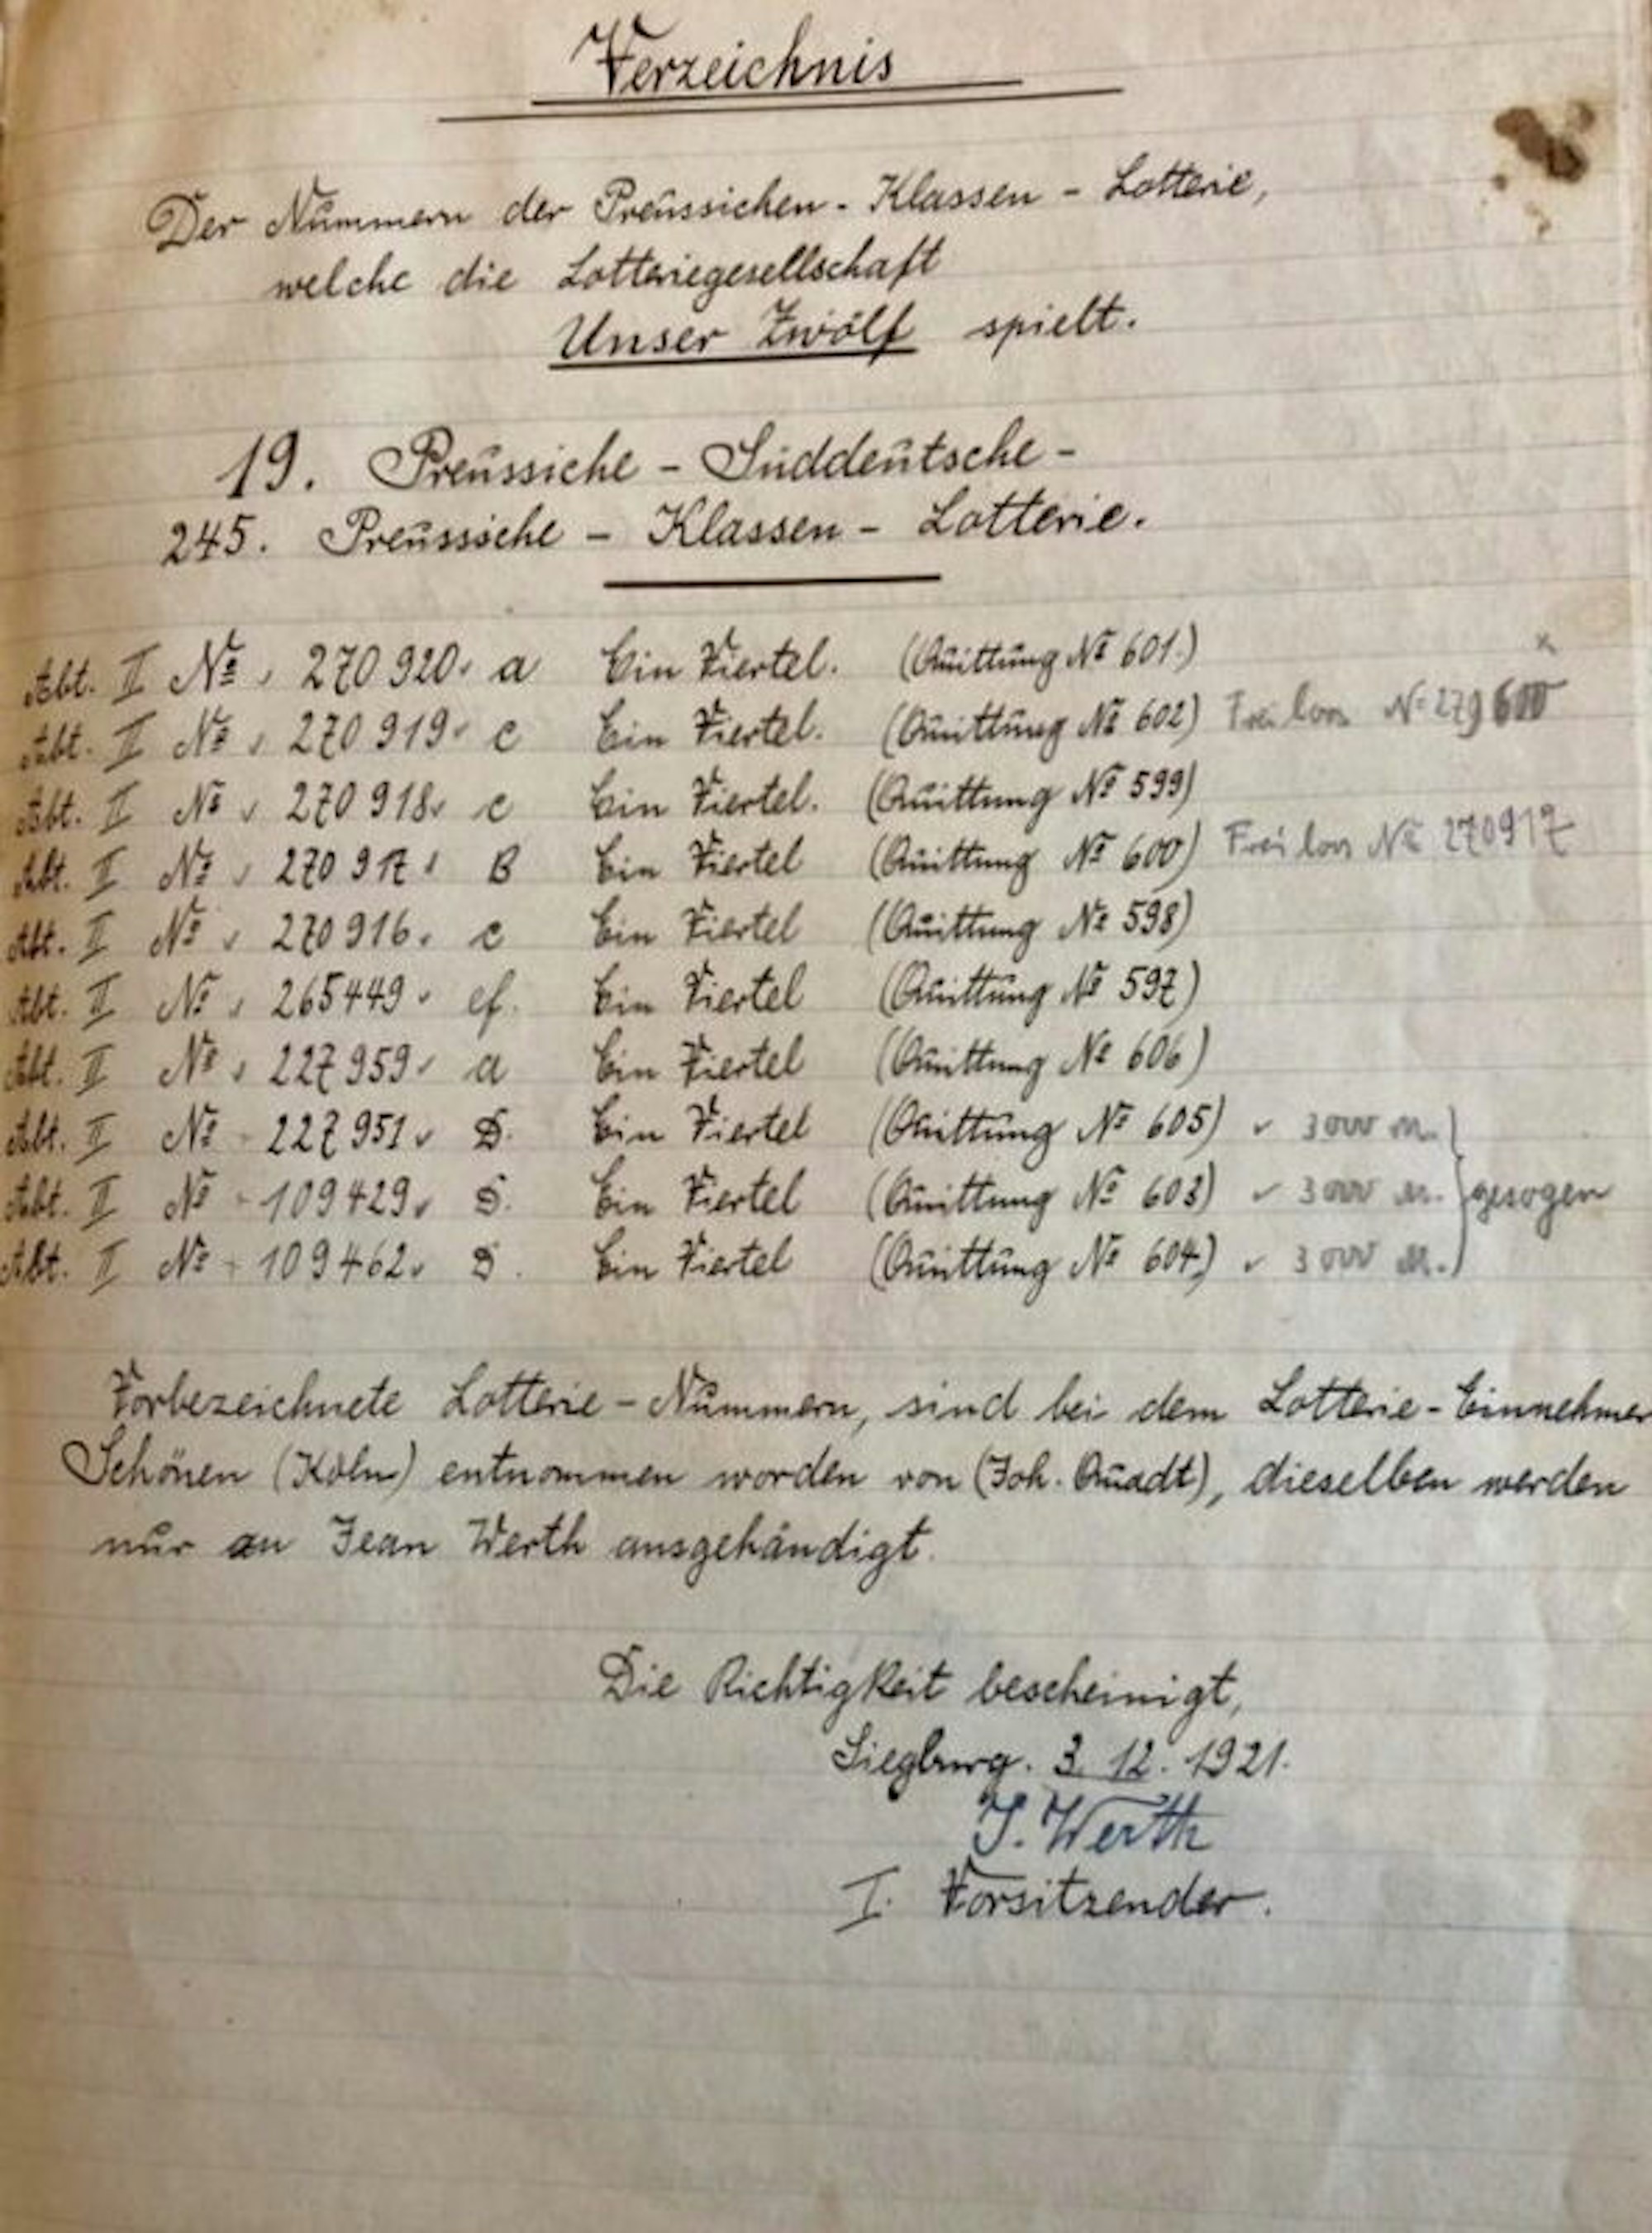 Verzeichnis
Der Nummern der Preussichen - Klassen - Lotterie,
welche die Lotteriegesellschaft
Unser Zwölf spielt.
19. Preussiche - Süddeutsche -
245. Preussiche - Klassen - Lotterie.
Abt. II № 270920. a Ein Viertel. (Quittung № 601.)
Abt. II № 270919. c Ein Viertel. (Quittung № 602) Freilos №
Abt. II № 270918. c Ein Viertel. (Quittung № 599)
Abt. II № 270917. B Ein Viertel (Quittung № 600) Freilos № 270917
Abt. II № 270916. c Ein Viertel (Quittung № 598)
Abt. II № 265449. Ein Viertel (Quittung № 597)
Abt. II № 227959. a Ein Viertel (Quittung № 606)
Abt. II № 227951. D. Ein Viertel (Quittung № 605) 3000 M.
Abt. II № 109429. Ein Viertel (Quittung № 603) 3000 M. } gezogen
Abt. II № 109462. D. Ein Viertel (Quittung № 604) 3000 M.
Vorbezeichnete Lotterie - Nummern, sind bei dem Lotterie - Einnehmer
Schönen (Köln) entnommen worden von (Joh. Quadt), dieselben werden
nur an Jean Werth ausgehändigt.
Die Richtigkeit bescheinigt,
Siegburg. 3. 12. 1921.
J. Werth
I. Vorsitzender.